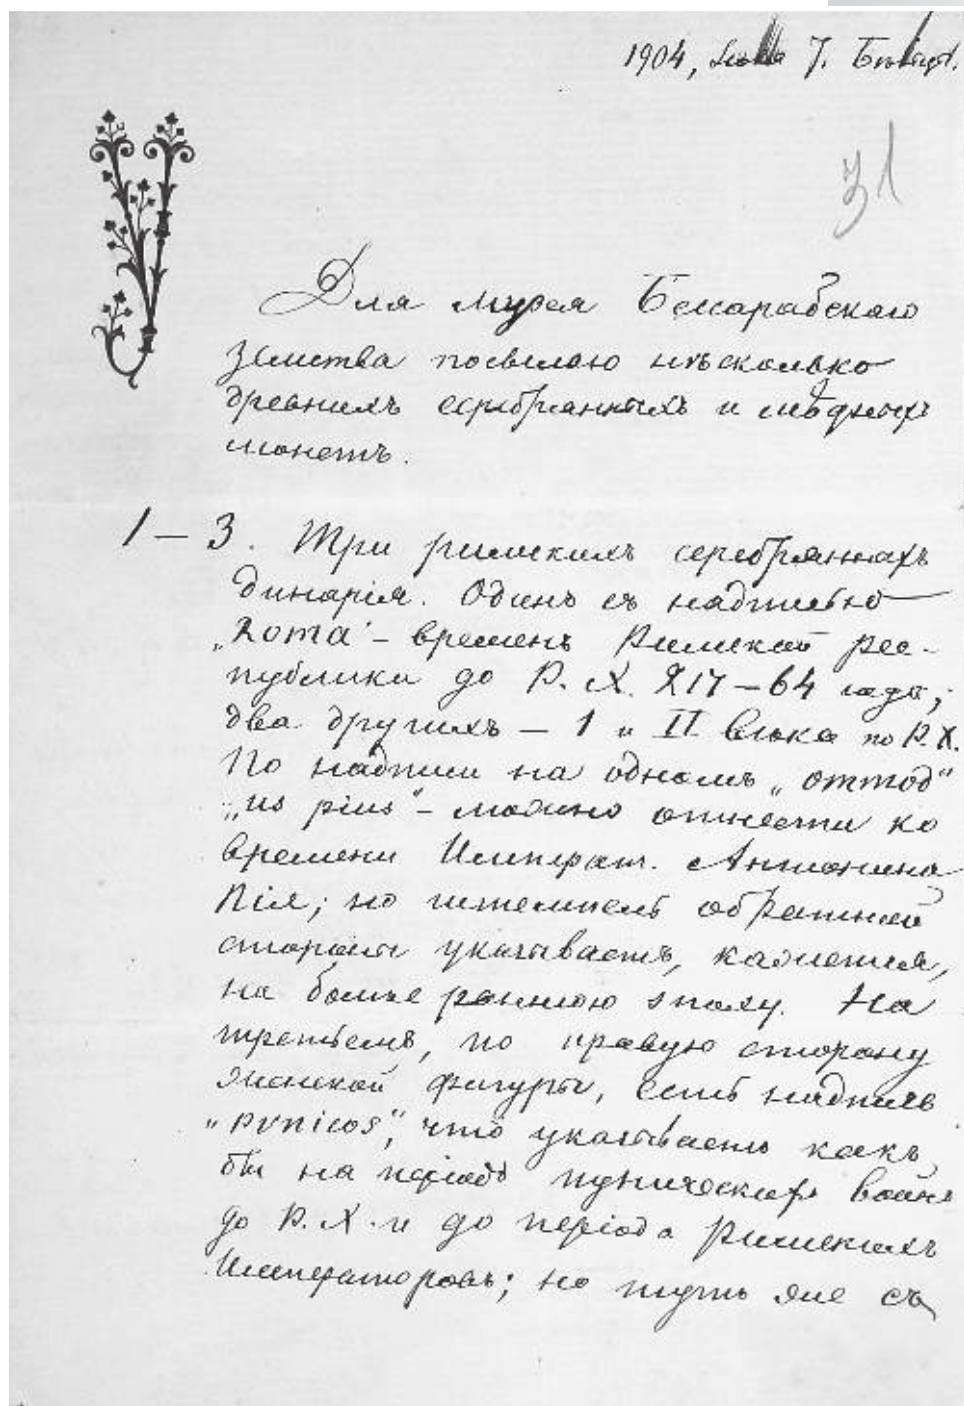 1904,
31
Для музея Бессарабскаго
земства посылаю нѣсколько
древнихъ серебрянныхъ и мѣдныхъ
монетъ.
1 – 3. Три римскихъ серебряннахъ
динарія. Одинъ съ надписью
„Roma" – временъ Римской рес-
публики до Р. Х. 217 – 64 года;
два другихъ – 1 и II вѣка по Р. Х.
По надписи на одномъ
„us pius" – можно отнести ко
времени Императ. Антонина
Пія; но штемпель обратной
стороны указываетъ, кажется,
на болѣе раннюю эпоху. На
третьемъ, по правую сторону
женской фигуры, есть надпись
„pvnicos", что указываетъ какъ
бы на періодъ пуническихъ войнъ
до Р. Х. и до періода Римскихъ
Императоровъ; но тутъ же съ